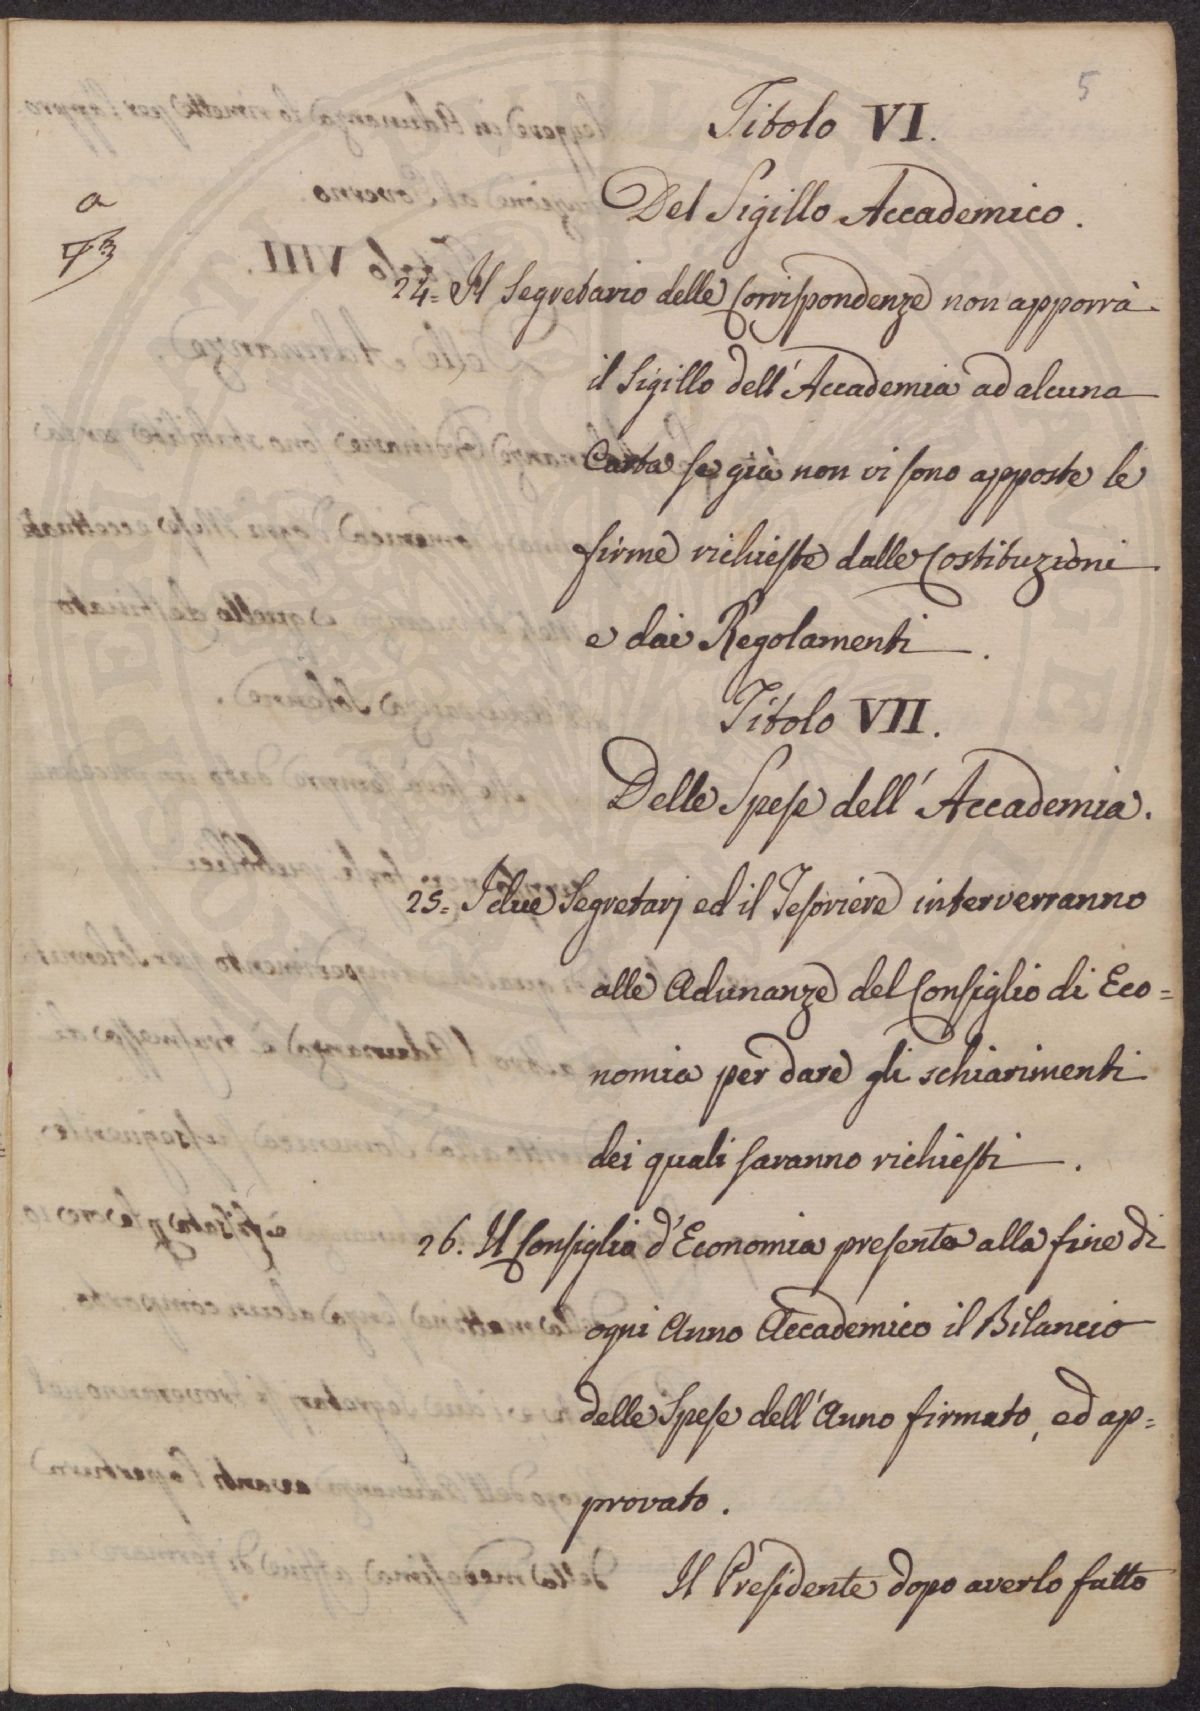 5
Titolo VI.
Del Sigillo Accademico.
a
24= Il Segretario delle Corrispondenze non apporrà
il Sigillo dell'Accademia ad alcuna
Carta se già non vi sono apposte le
firme richieste dalle Costituzioni
e dai Regolamenti.
Titolo VII.
Delle Spese dell'Accademia.
25= I due Segretarj ed il Tesoriere interverranno
alle Adunanze del Consiglio di Eco=
nomia per dare gli schiarimenti
dei quali saranno richiesti.
26. Il Consiglio d'Economia presenta alla fine di
ogni Anno Accademico il Bilancio
delle Spese dell'Anno firmato, ed ap=
provato.
Il Presidente dopo averlo fatto